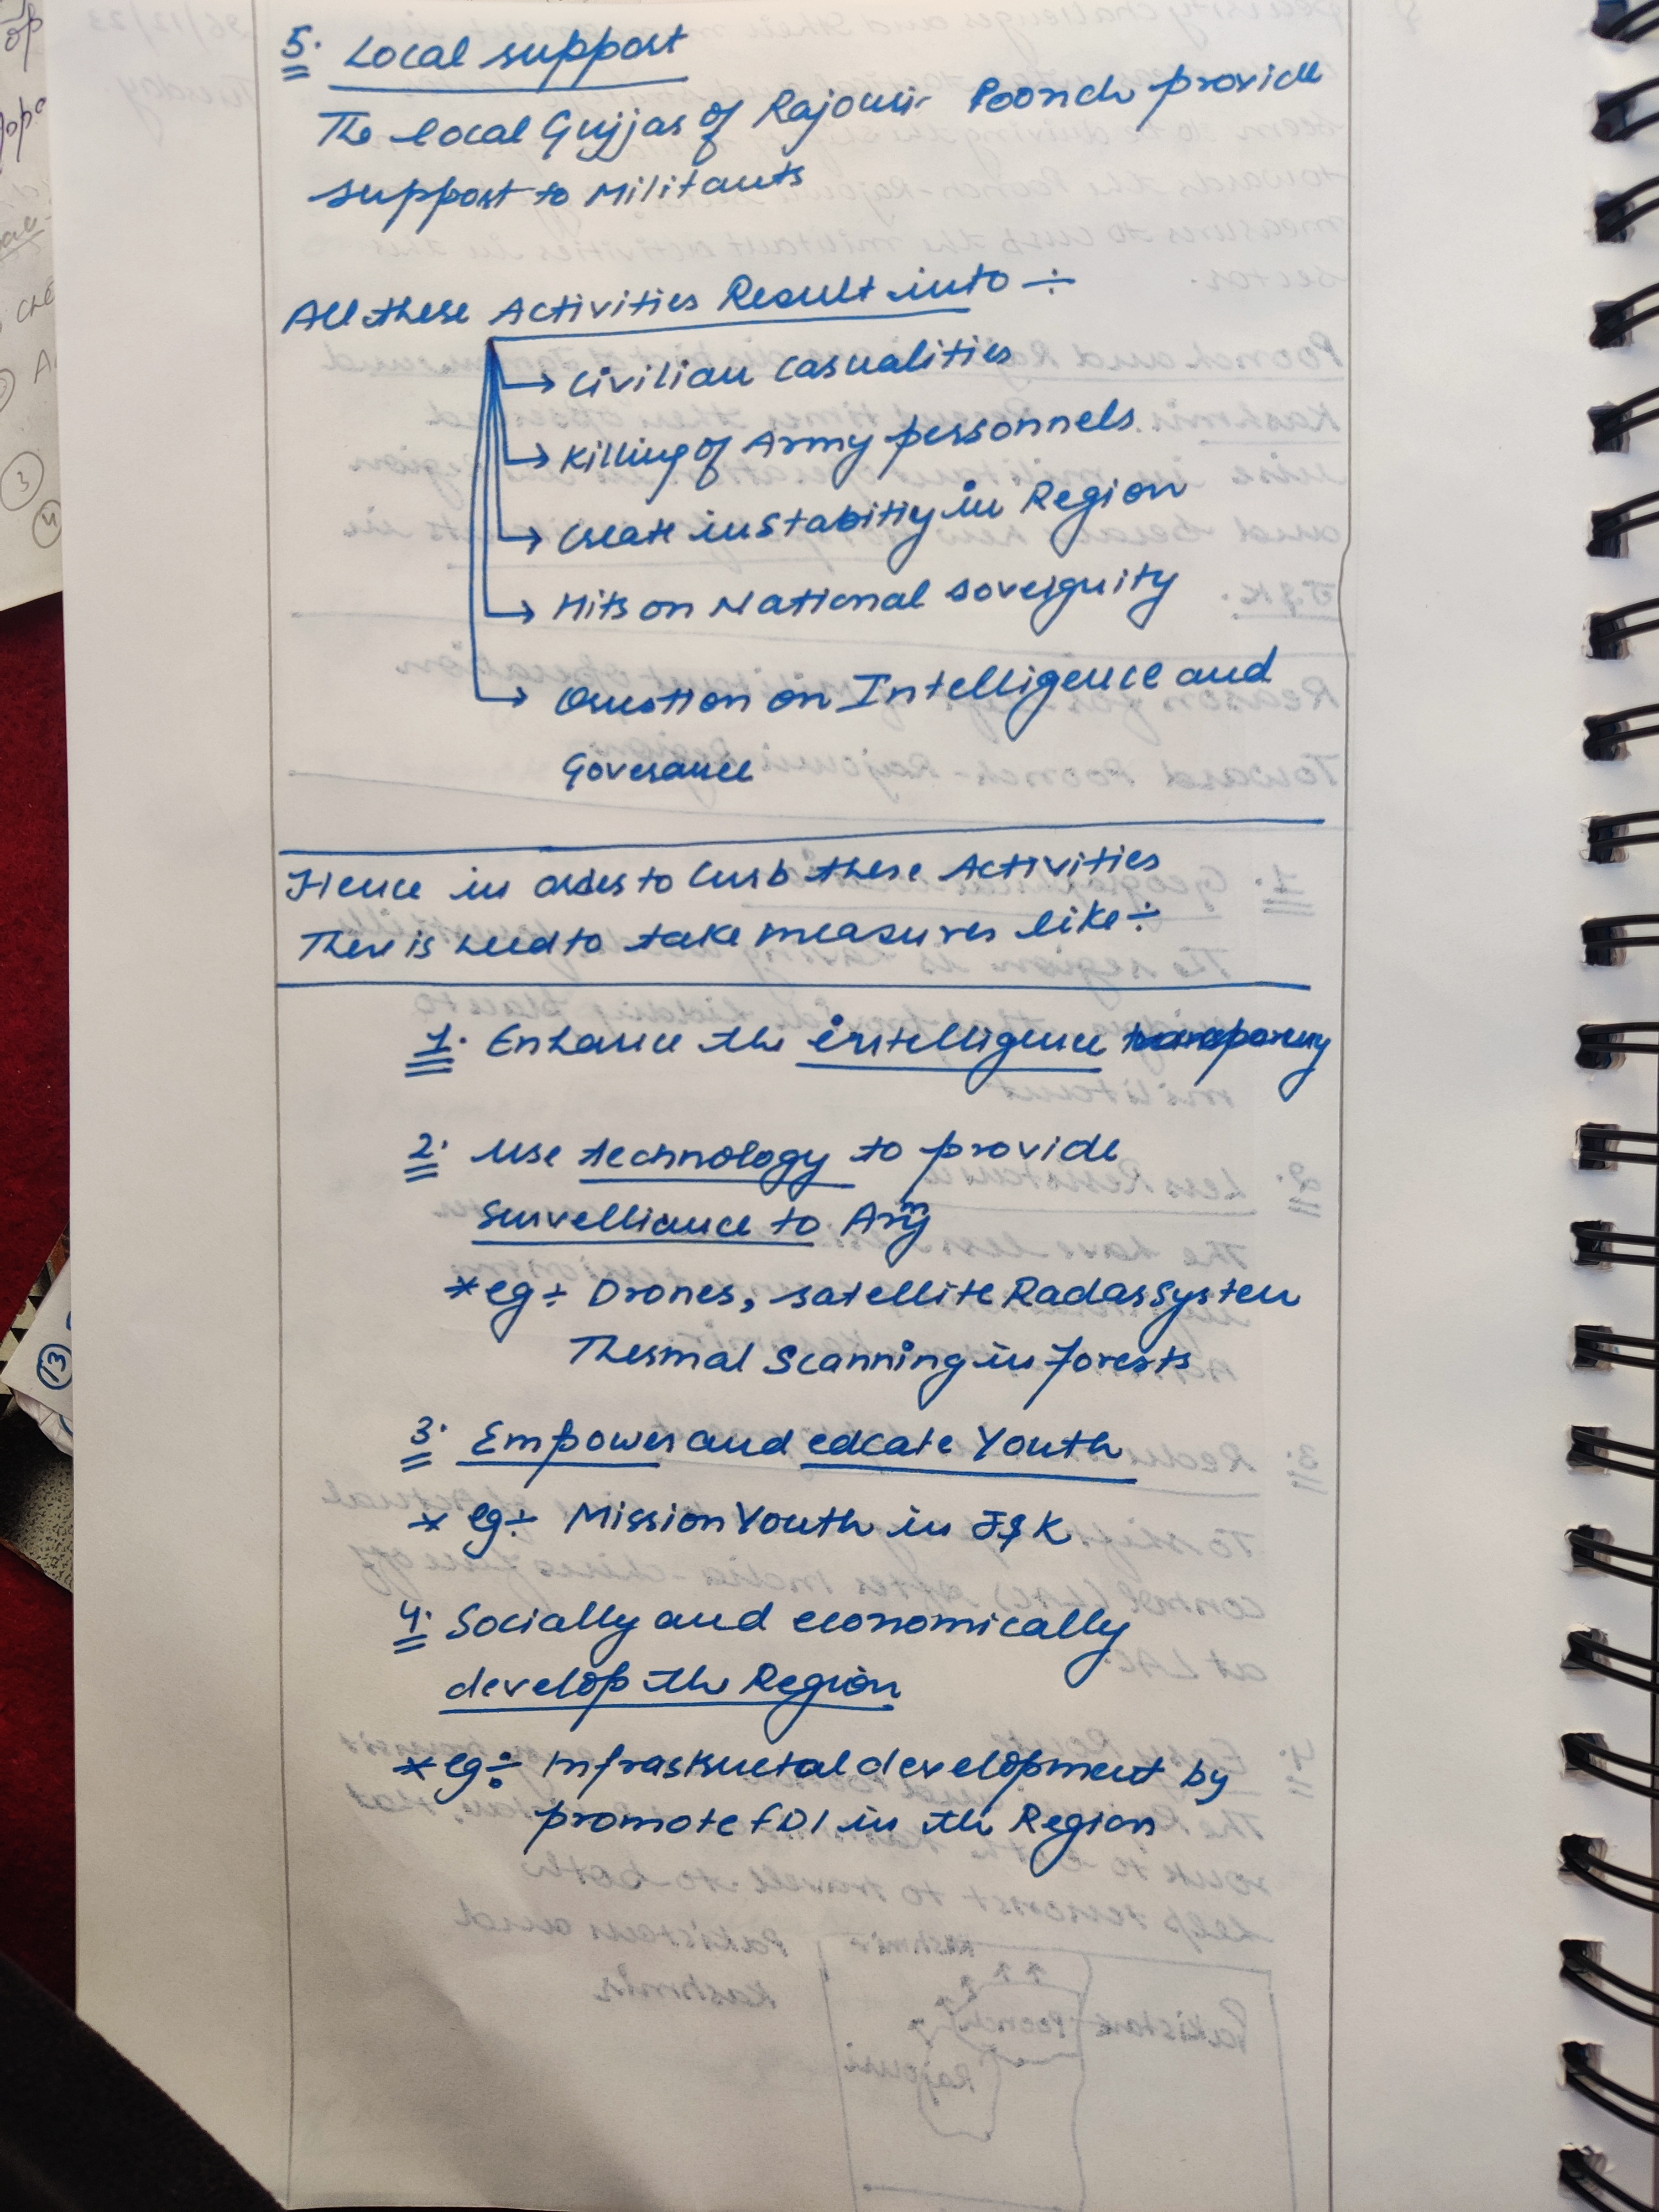 5. Local support
The local Gujjas of Rajouri- Poonch provide
support to Militants
All these Activities Result into ÷
→ Civilian Casualities
→ Killing of Army personnels.
→ Create instabitiy in Region
→ Hits on National soveignity
→ Question on Intelligence and
Goverance
Hence in order to Curb these Activities
There is need to take measures like ÷
1. Enhance the intelligence
2. Use technology to provide
Survelliance to Army
* eg ÷ Drones, satellite Radar System
Thermal Scanning in forests
3. Empower and edcate Youth
* eg ÷ Mission Youth in J&K
4. Socially and economically
develop the Region
* eg ÷ Infrastructal development by
promote FDI in the Region
3
4
13